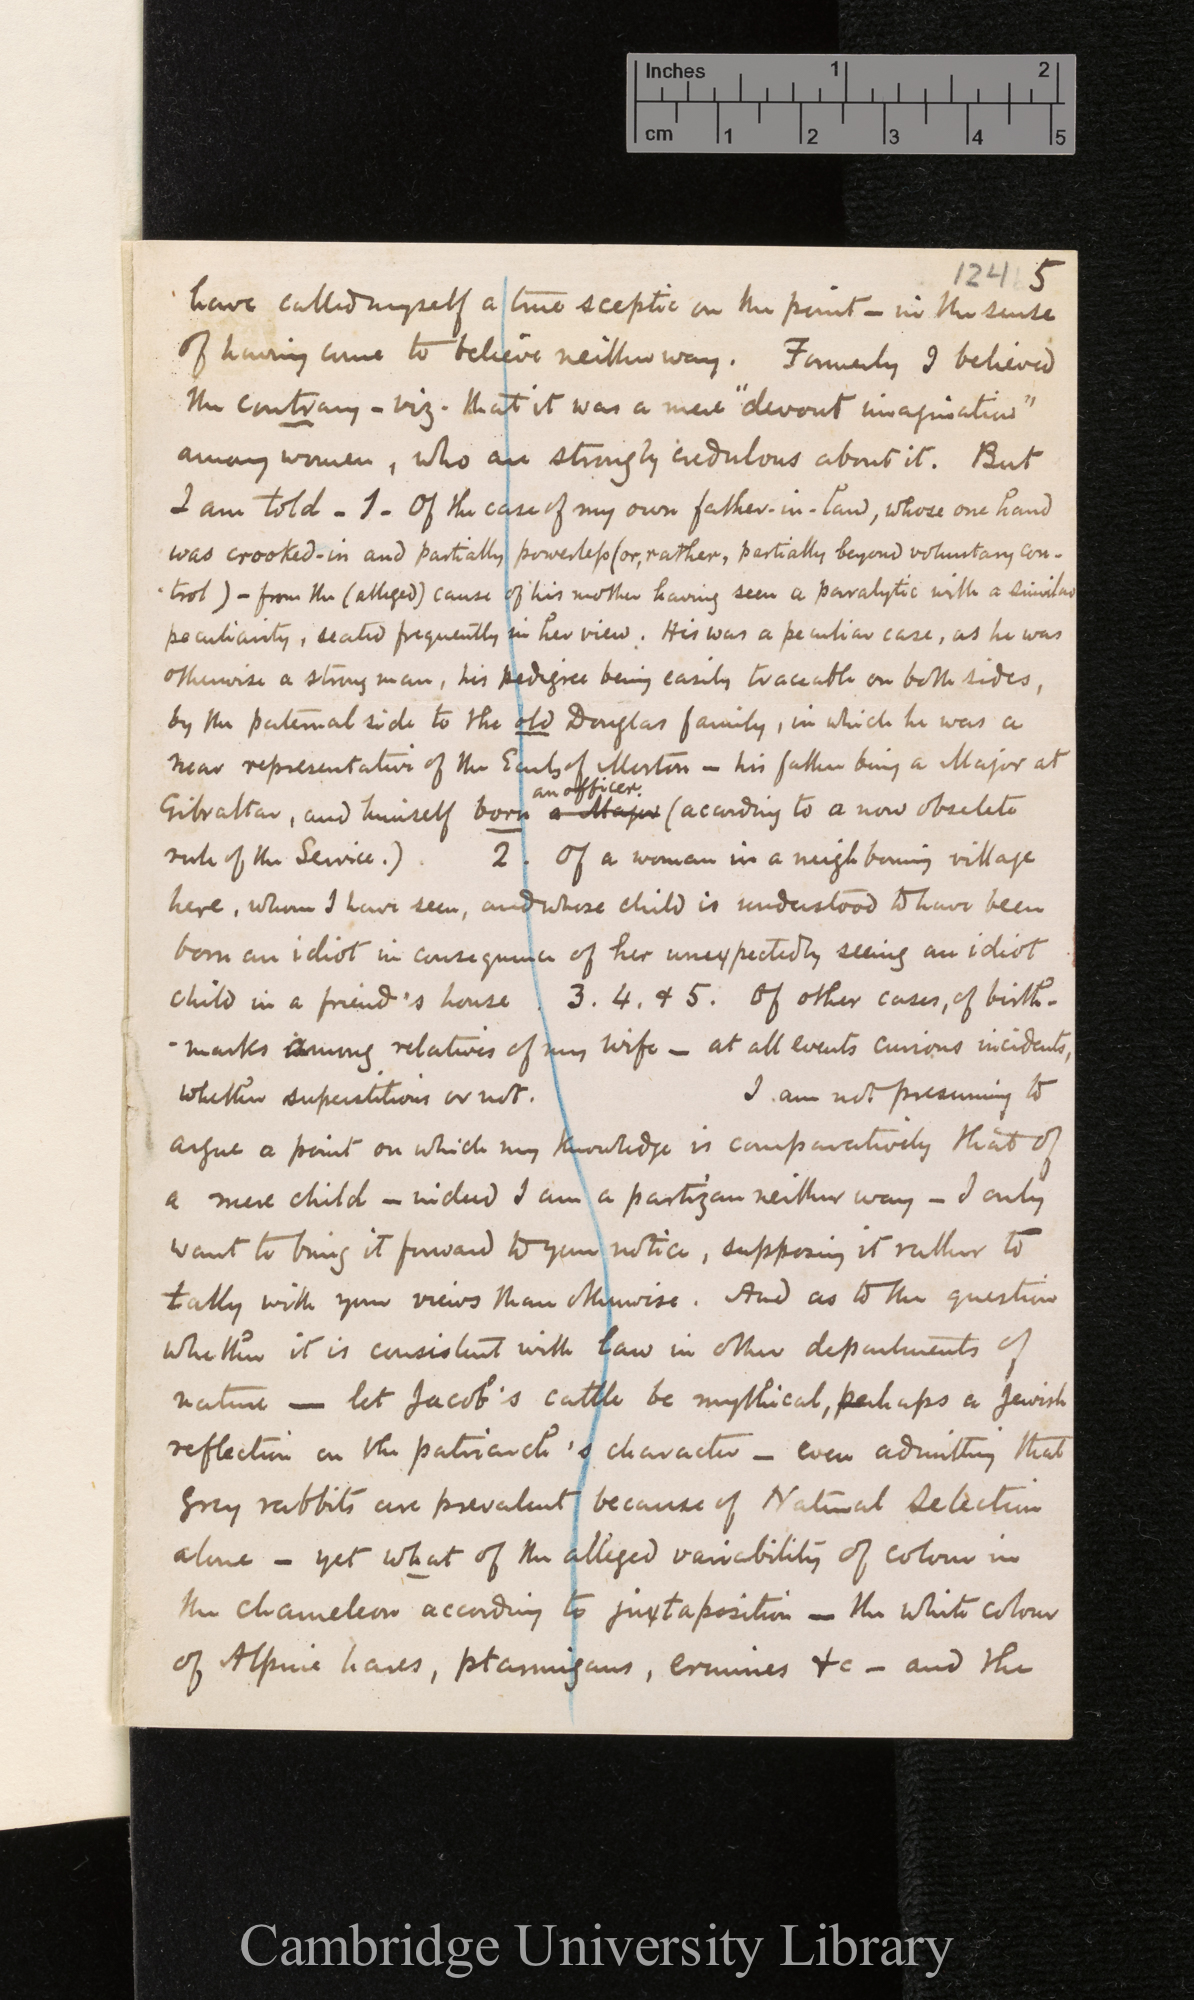 Inches 1 2
cm 1 2 3 4 5
124 5
have called myself a true sceptic on the point – in the sense
of having come to believe neither way. Formerly I believed
the contrary – viz. that it was a mere "devout imagination"
among women, who are strongly credulous about it. But
I am told – 1 – Of the case of my own father-in-law, whose one hand
was crooked-in and partially powerless (or, rather, partially beyond voluntary con-
-trol) – from the (alleged) cause of his mother having seen a paralytic with a similar
peculiarity, seated frequently in her view. His was a peculiar case, as he was
otherwise a strong man, his pedigree being easily traceable on both sides,
by the paternal side to the old Douglas family, in which he was a
near representative of the Earls of Morton – his father being a Major at
an officer.
Gibraltar, and himself born a Major (according to a now obsolete
rule of the Service.) 2. Of a woman in a neighbouring village
here, whom I have seen, and whose child is understood to have been
born an idiot in consequence of her unexpectedly seeing an idiot
child in a friend's house. 3. 4. & 5. Of other cases, of birth-
-marks among relatives of my wife – at all events curious incidents,
whether superstitious or not. I am not presuming to
argue a point on which my knowledge is comparatively that of
a mere child – indeed I am a partizan neither way – I only
want to bring it forward to your notice, supposing it rather to
tally with your views than otherwise. And as to the question
whether it is consistent with law in other departments of
nature — let Jacob's cattle be mythical, perhaps a Jewish
reflection on the patriarch's character – even admitting that
grey rabbits are prevalent because of Natural Selection
alone – yet what of the alleged variability of colour in
the chameleon according to juxtaposition – the white colour
of Alpine hares, ptarmigans, ermines &c – and the
Cambridge University Library